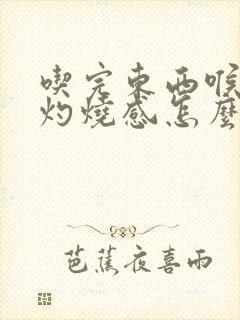 喫完東西喉
灼燒感怎麼
芭蕉夜喜雨